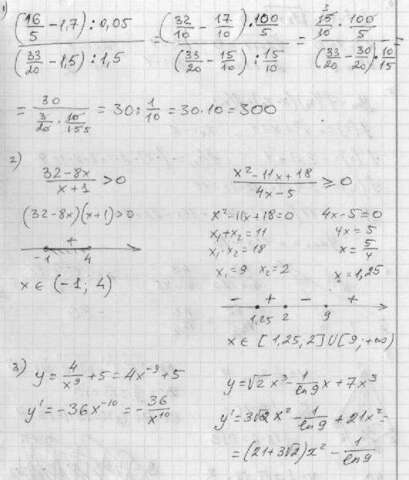 1) ((16/5 − 1,7) : 0,05) / ((33/20 − 1,5) : 1,5) = ((32/10 − 17/10) · 100/5) / ((33/20 − 15/10) : 15/10) = (15/10 · 100/5) / ((33/20 − 30/20) · 10/15) =
= 30 / (3/20 · 10/15) = 30 : 1/10 = 30 · 10 = 300
2) (32 − 8x)/(x + 1) > 0
(32 − 8x)(x + 1) > 0
+
−1 4
x ∈ (−1; 4)
(x² − 11x + 18)/(4x − 5) ⩾ 0
x² − 11x + 18 = 0 4x − 5 = 0
x₁ + x₂ = 11 4x = 5
x₁ · x₂ = 18 x = 5/4
x₁ = 9 x₂ = 2 x = 1,25
− + − +
1,25 2 9
x ∈ [1,25, 2] ∪ [9; +∞)
3) y = 4/x⁹ + 5 = 4x⁻⁹ + 5
y' = −36x⁻¹⁰ = −36/x¹⁰
y = √2 x³ − 1/ln9 x + 7x³
y' = 3√2 x² − 1/ln9 + 21x² =
= (21 + 3√2)x² − 1/ln9